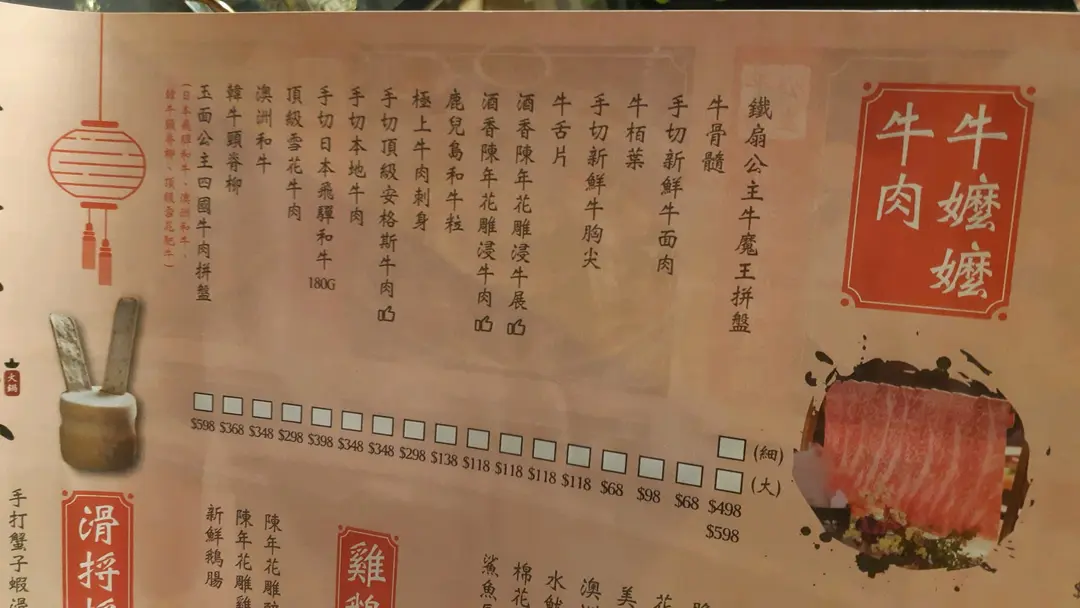 牛嬤嬤
牛肉
鐵扇公主牛魔王拼盤
牛骨髓
手切新鮮牛面肉
牛栢葉
手切新鮮牛胸尖
牛舌片
酒香陳年花雕浸牛展
酒香陳年花雕浸牛肉
鹿兒島和牛粒
極上牛肉刺身
手切頂級安格斯牛肉
手切本地牛肉
手切日本飛驒和牛 180G
頂級雪花牛肉
澳洲和牛
韓牛頸脊柳
玉面公主四國牛肉拼盤
(日本飛驒和牛、澳洲和牛、
韓牛頸脊柳、頂級雪花肥牛)
(細)
(大)
$598 $368 $348 $298 $398 $348 $348 $298 $138 $118 $118 $118 $118 $68 $98 $68 $498
$598
火鍋
雞
陳年花雕
陳年花雕雞
新鮮鵝腸
滑捋
手打蟹子蝦滑
鯊魚
棉花
水魷
澳洲
美
花